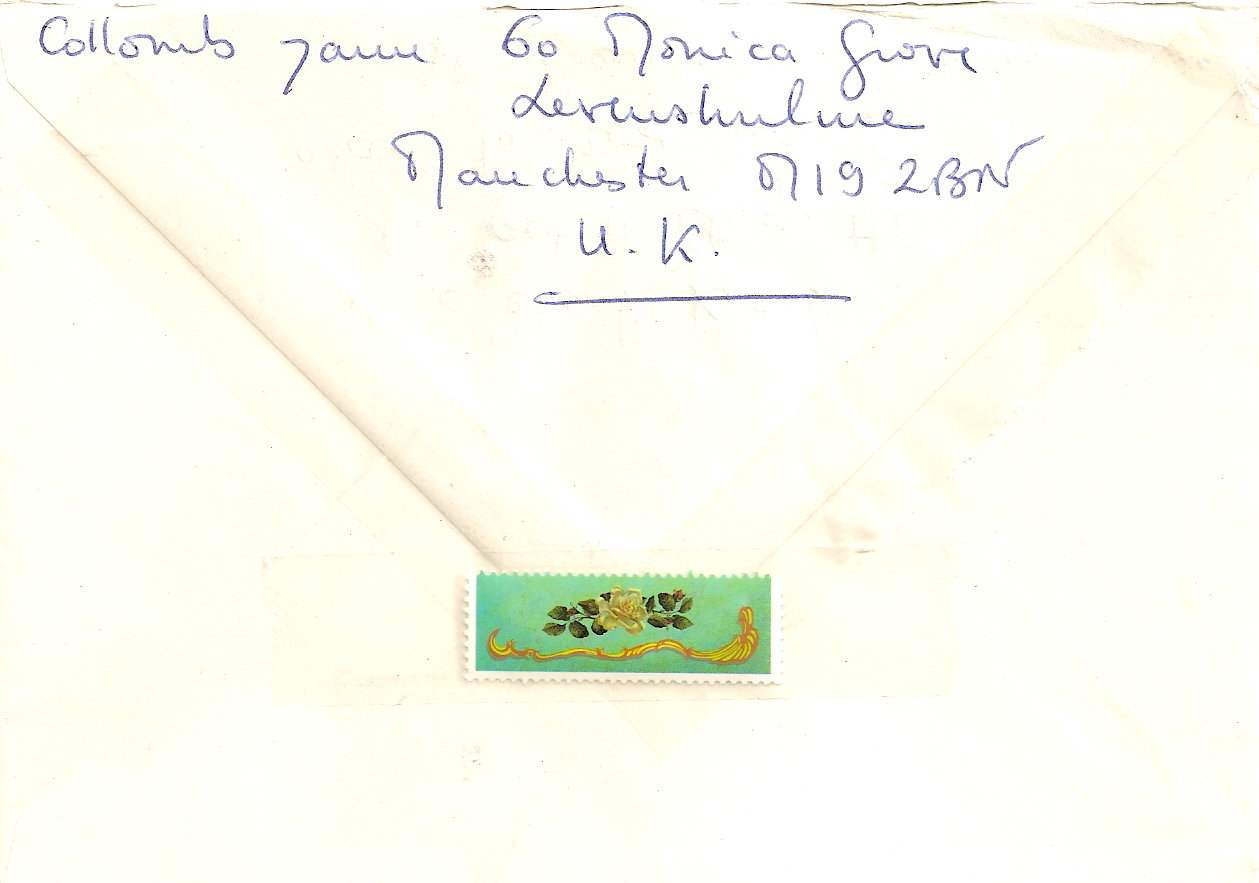 Collomb Yann 60 Monica Grove
Levenshulme
Manchester M19 2BN
U.K.